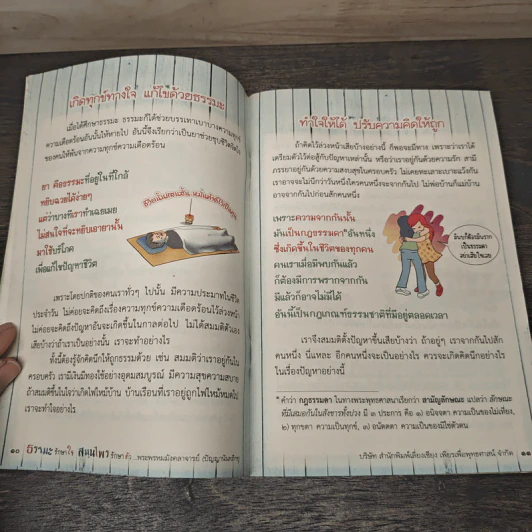 เกิดทุกข์ทางใจ แก้ไขด้วยธรรมะ
เมื่อได้ศึกษาธรรมะ ธรรมะก็ได้ช่วยบรรเทาเบาบางความทุกข์
ความเดือดร้อนอันนั้นให้หายไป อันนี้จึงเรียกว่าเป็นยาช่วยชุบชีวิตจิตใจ
ของคนให้พ้นจากความทุกข์ความเดือดร้อน
ยา คือธรรมะที่อยู่ในที่ใกล้
หยิบฉวยได้ง่ายๆ
แต่ว่าบางทีเราทำเฉยเมย
ไม่สนใจที่จะหยิบเอายานั้น
มาใช้บริโภค
เพื่อแก้ไขปัญหาชีวิต
เพราะโดยปกติของคนเราทั่วๆ ไปนั้น มีความประมาทในชีวิต
ประจำวัน ไม่ค่อยจะคิดถึงเรื่องความทุกข์ความเดือดร้อนไว้ล่วงหน้า
ไม่ค่อยจะคิดถึงปัญหาอันจะเกิดขึ้นในกาลต่อไป ไม่ได้สมมติตัวเอง
เสียบ้างว่าถ้าเราเป็นอย่างนั้น เราจะทำอย่างไร
ทั้งนี้ต้องรู้จักคิดนึกให้ถูกธรรมด้วย เช่น สมมติว่าเราอยู่กันใน
ครอบครัว เรามีเงินมีทองใช้อย่างอุดมสมบูรณ์ มีความสุขความสบาย
ถ้าสมมติขึ้นในใจว่าเกิดไฟไหม้บ้าน บ้านเรือนที่เราอยู่ถูกไฟไหม้หมดไป
เราจะทำอย่างไร
๑๐ ธรรมะรักษาใจ สมุนไพรรักษาตัว ...พระพรหมมังคลาจารย์ (ปัญญานันทภิกขุ)
ทำใจให้ได้ ปรับความคิดให้ถูก
ถ้าคิดไว้ล่วงหน้าเสียบ้างอย่างนี้ ก็พอจะมีทาง เพราะว่าเราได้
เตรียมตัวไว้ต่อสู้กับปัญหาเหล่านั้น หรือว่าเราอยู่กันด้วยความรัก สามี
ภรรยาอยู่กันด้วยความสงบสุขในครอบครัว ไม่เคยทะเลาะเบาะแว้งกัน
เราอาจจะไม่นึกว่าวันหนึ่งใครคนหนึ่งจะจากกันไป ไม่พ่อบ้านก็แม่บ้าน
อาจจากกันไปก่อนสักคนหนึ่ง
เพราะความจากกันนั้น
มันเป็นกฎธรรมดา*อันหนึ่ง
ซึ่งเกิดขึ้นในชีวิตของทุกคน
คนเราเมื่อมีพบกันแล้ว
ก็ต้องมีการพรากจากกัน
มีแล้วก็อาจไม่มีได้
อันนี้เป็นกฎเกณฑ์ธรรมชาติที่มีอยู่ตลอดเวลา
เป็นธรรมดา
เราจึงสมมติตั้งปัญหาขึ้นเสียบ้างว่า ถ้าอยู่ๆ เราจากกันไปสัก
คนหนึ่ง นี่แหละ อีกคนหนึ่งจะเป็นอย่างไร ควรจะเกิดคิดนึกอย่างไร
ในเรื่องปัญหาอย่างนี้
* คำว่า กฎธรรมดา ในทางพระพุทธศาสนาเรียกว่า สามัญลักษณะ แปลว่า ลักษณะ
ที่มีเสมอกันในสังขารทั้งปวง มี ๓ ประการ คือ ๑) อนิจจตา ความเป็นของไม่เที่ยง,
๒) ทุกขตา ความเป็นทุกข์, ๓) อนัตตตา ความเป็นของมิใช่ตัวตน
บริษัท สำนักพิมพ์เลี่ยงเชียง เพียรเพื่อพุทธศาสน์ จำกัด ๑๑